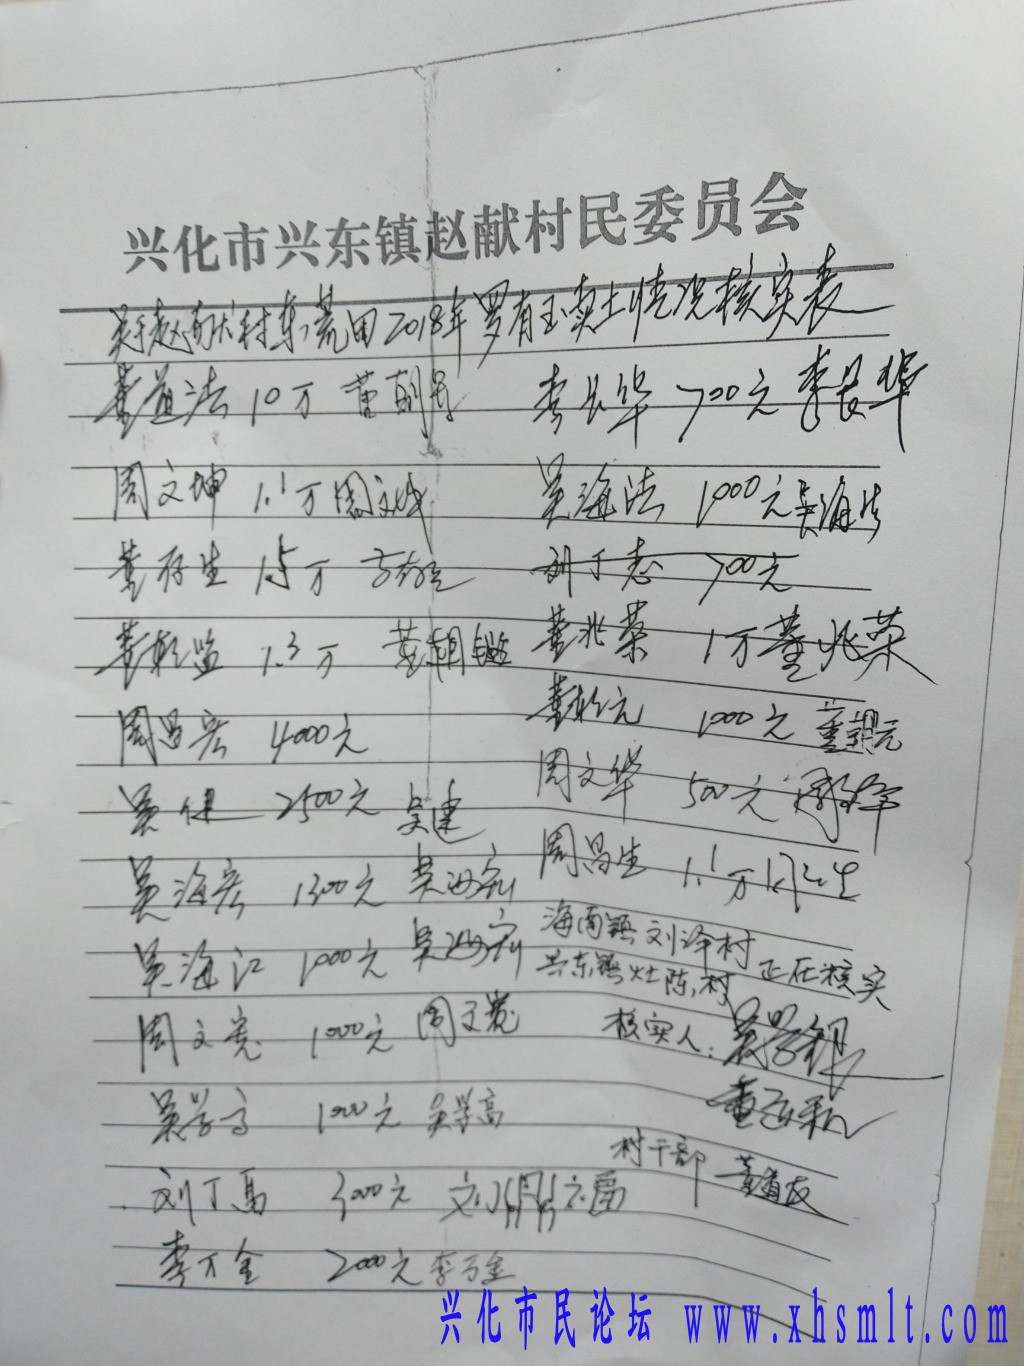 兴化市兴东镇赵献村民委员会
关于赵献村东荒田2018年罗有玉卖土情况核实表
董道法 10万
周文坤 1.1万 周文坤
董存生 1.5万
董朝鉴 1.3万 董朝鉴
周昌宏 4000元
吴健 2500元 吴建
吴海宏 1300元 吴海宏
吴海江 1000元 吴海宏
周文宽 1000元 周文宽
吴学高 1000元 吴学高
刘丁高 3000元
李万金 2000元 李万金
李长华 700元 李长华
吴海法 1000元 吴海法
刘丁志 700元
董兆荣 1万 董兆荣
董朝元 1000元 董朝元
周文华 500元 周文华
周昌生 1.1万
海南镇刘泽村
兴东镇灶陈村 正在核实
核实人:
村干部
兴化市民论坛 www.xhsmlt.com